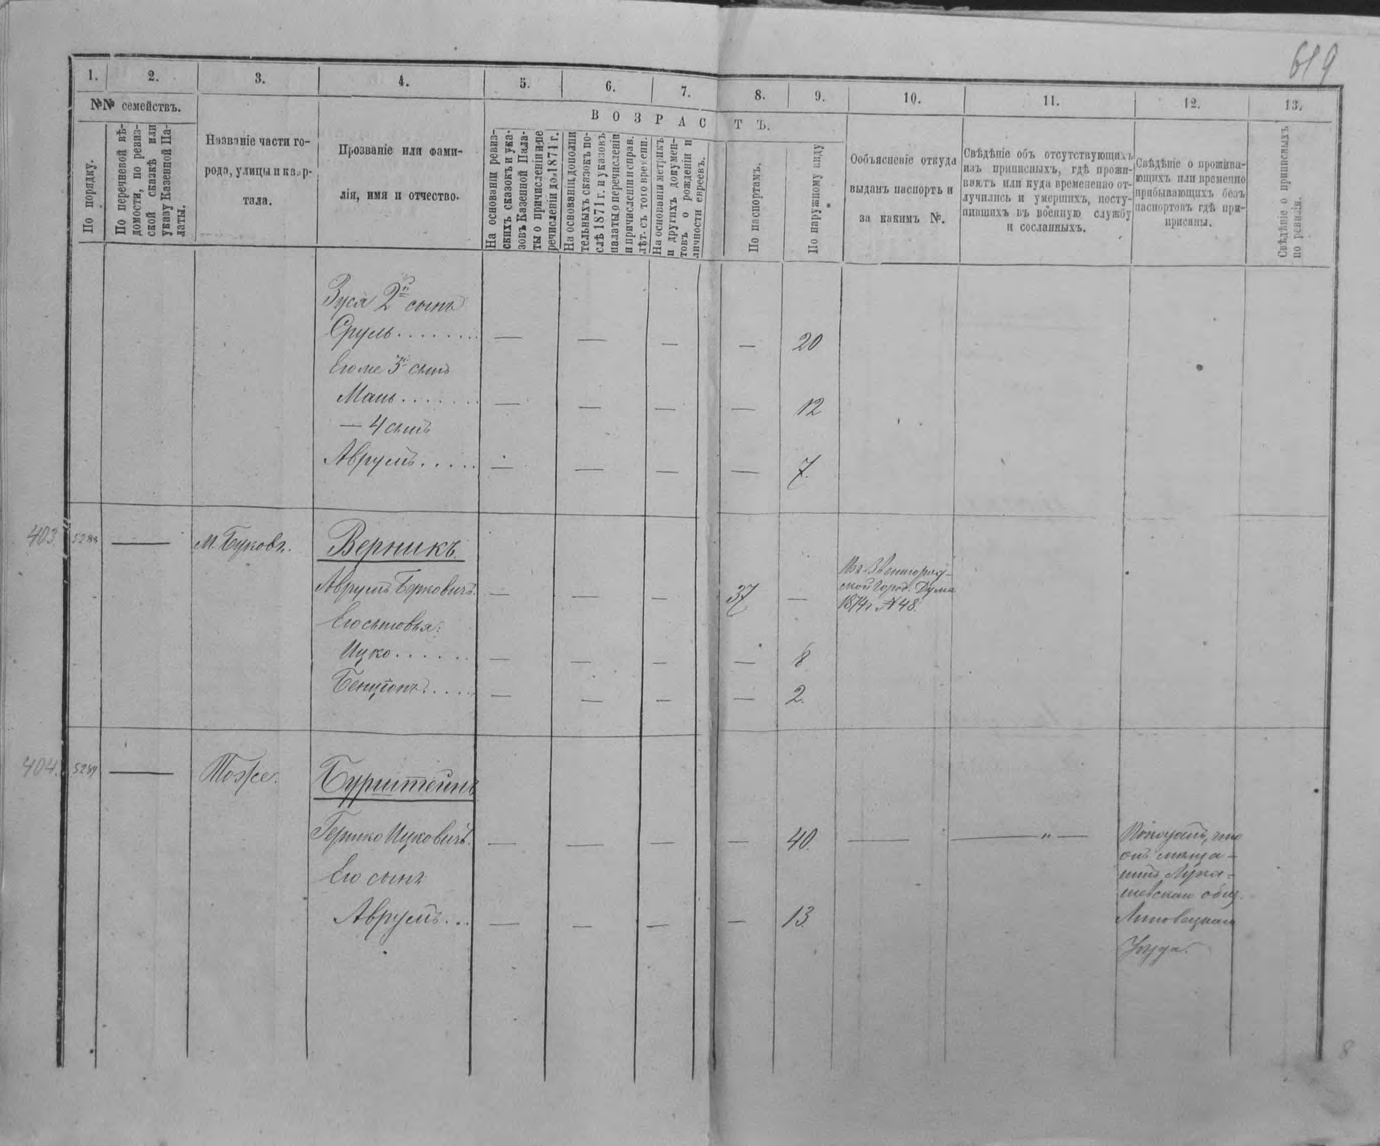 619
1.
2.
3.
4.
5.
6.
7.
8.
9.
10.
11.
12.
13.
№№ семействъ.
По порядку.
По перечневой вѣ-
домости, по ревиз-
ской сказкѣ или
указу Казенной Па-
латы.
Названіе части го-
рода, улицы и квар-
тала.
Прозваніе или фами-
лія, имя и отчество.
ВОЗРАСТЪ.
На основаніи ревиз-
скихъ сказокъ и ука-
зовъ Казенной Пала-
ты о причисленіи и пе
речисленіи до 1871 г.
На основаніи дополни
тельныхъ сказокъ по-
слѣ 1871 г. и указовъ
палаты о перечисленіи
и причисленіи и исправ.
лѣт. съ того времени.
На основаніи метрикъ
и другихъ докумен-
товъ о рожденіи и
личности евреевъ.
По паспортамъ.
По наружному виду
Ообъясненіе откуда
выданъ паспортъ и
за какимъ №.
Свѣдѣніе объ отсутствующихъ
изъ приписныхъ, гдѣ прожи-
ваютъ или куда временно от-
лучились и умершихъ, посту-
пившихъ въ военную службу
и сосланныхъ.
Свѣдѣніе о прожива-
ющихъ или временно
прибывающихъ безъ
паспортовъ гдѣ при-
писаны.
Свѣдѣніе о приписныхъ
по ревизіи.
Зуся 2й сынъ
Сруль . . . . . . . — — — — 20
Его же 3й сынъ
Мань . . . . . . — — — — 12
— 4 сынъ
Аврумъ . . . . . — — — — 7.
403. 5288 — М. Буковъ. Верникъ.
Аврумъ Берковичъ. — — — 37 —
Въ Звенигород-
ской Город. Дума
1874 г. № 48.
Его сыновья:
Ицко . . . . . . — — — — 8
Бенціонъ . . . . — — — — 2.
404. 5289 — Тоже. Бурштейнъ
Гершко Ицковичъ. — — — — 40. — — " —
Его сынъ
Аврумъ . . . — — — — 13.
Показалъ, что
онъ мѣща-
нинъ Лука-
шевской общ.
Липовецкаго
Уѣзда.
8